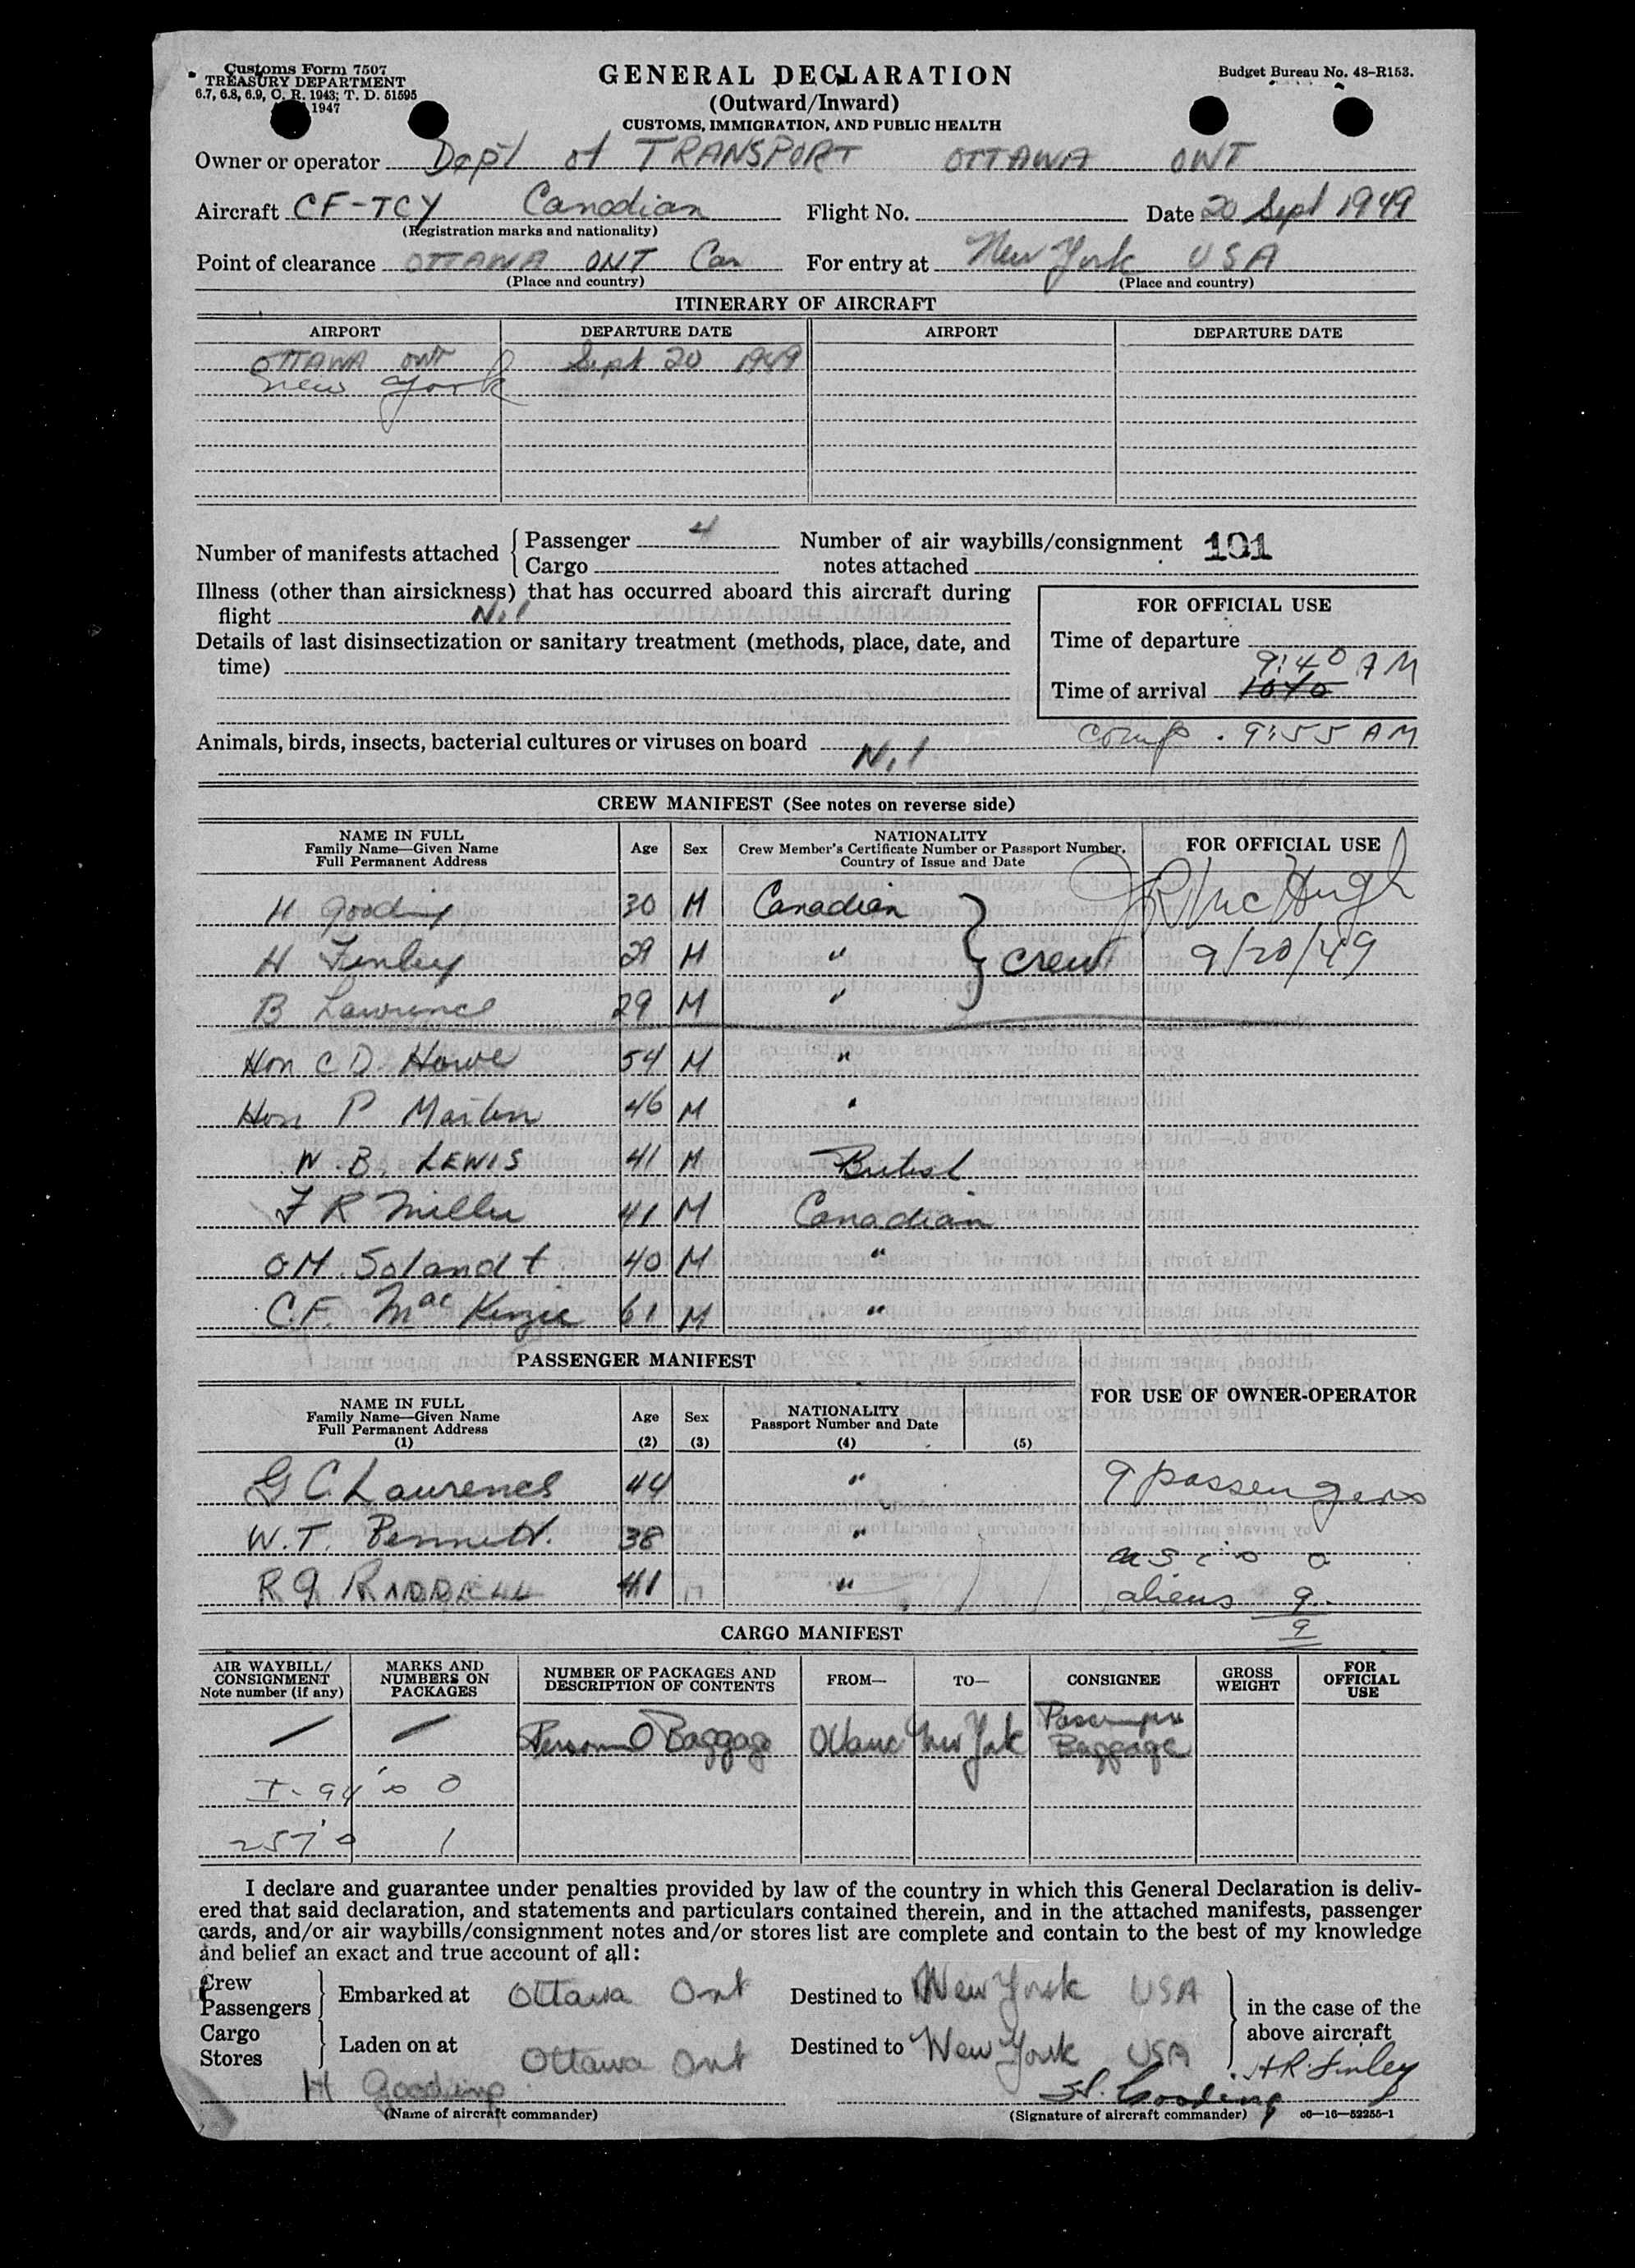 Customs Form 7507
TREASURY DEPARTMENT
6.7, 6.8, 6.9, C. R. 1943; T. D. 51595
1947
GENERAL DECLARATION
(Outward/Inward)
CUSTOMS, IMMIGRATION, AND PUBLIC HEALTH
Budget Bureau No. 43-R153.
Owner or operator Dept of TRANSPORT OTTAWA ONT
Aircraft CF-TCY Canadian Flight No. Date 20 Sept 1949
(Registration marks and nationality)
Point of clearance OTTAWA ONT Can For entry at New York USA
(Place and country) (Place and country)
ITINERARY OF AIRCRAFT
AIRPORT DEPARTURE DATE AIRPORT DEPARTURE DATE
OTTAWA ONT Sept 20 1949
New York
Number of manifests attached Passenger 4 Number of air waybills/consignment 101
Cargo notes attached
Illness (other than airsickness) that has occurred aboard this aircraft during
flight Nil
FOR OFFICIAL USE
Details of last disinsectization or sanitary treatment (methods, place, date, and
time)
Time of departure
9:40 AM
Time of arrival 1040
comp. 9:55 AM
Animals, birds, insects, bacterial cultures or viruses on board Nil
CREW MANIFEST (See notes on reverse side)
NAME IN FULL
Family Name—Given Name
Full Permanent Address
Age Sex
NATIONALITY
Crew Member's Certificate Number or Passport Number,
Country of Issue and Date
FOR OFFICIAL USE
H Gooding 30 M Canadian JR McHugh
H Finley 29 M " Crew 9/20/49
B Lawrence 29 M "
Hon C D Howe 54 M "
Hon P Martin 46 M "
W. B. LEWIS 41 M British
F R Miller 41 M Canadian
O M. Solandt 40 M "
C.F. MacKenzie 61 M "
PASSENGER MANIFEST
NAME IN FULL
Family Name—Given Name
Full Permanent Address
(1)
Age
(2)
Sex
(3)
NATIONALITY
Passport Number and Date
(4) (5)
FOR USE OF OWNER-OPERATOR
G C. Lawrence 44 " 9 passengers
W. T. Bennett. 38 "
usc's 0
R G RIDDELL 41 " aliens 9
9
CARGO MANIFEST
AIR WAYBILL/
CONSIGNMENT
Note number (if any)
MARKS AND
NUMBERS ON
PACKAGES
NUMBER OF PACKAGES AND
DESCRIPTION OF CONTENTS
FROM—
TO—
CONSIGNEE
GROSS
WEIGHT
FOR
OFFICIAL
USE
— — Personal Baggage Ottawa New York Passengers Baggage
I-94's 0
257's 1
I declare and guarantee under penalties provided by law of the country in which this General Declaration is deliv-
ered that said declaration, and statements and particulars contained therein, and in the attached manifests, passenger
cards, and/or air waybills/consignment notes and/or stores list are complete and contain to the best of my knowledge
and belief an exact and true account of all:
Crew
Passengers Embarked at Ottawa Ont Destined to New York USA in the case of the
Cargo above aircraft
Stores Laden on at Ottawa Ont Destined to New York USA
H R Finley
H Gooding H. Gooding
(Name of aircraft commander) (Signature of aircraft commander) c6—16—52255-1